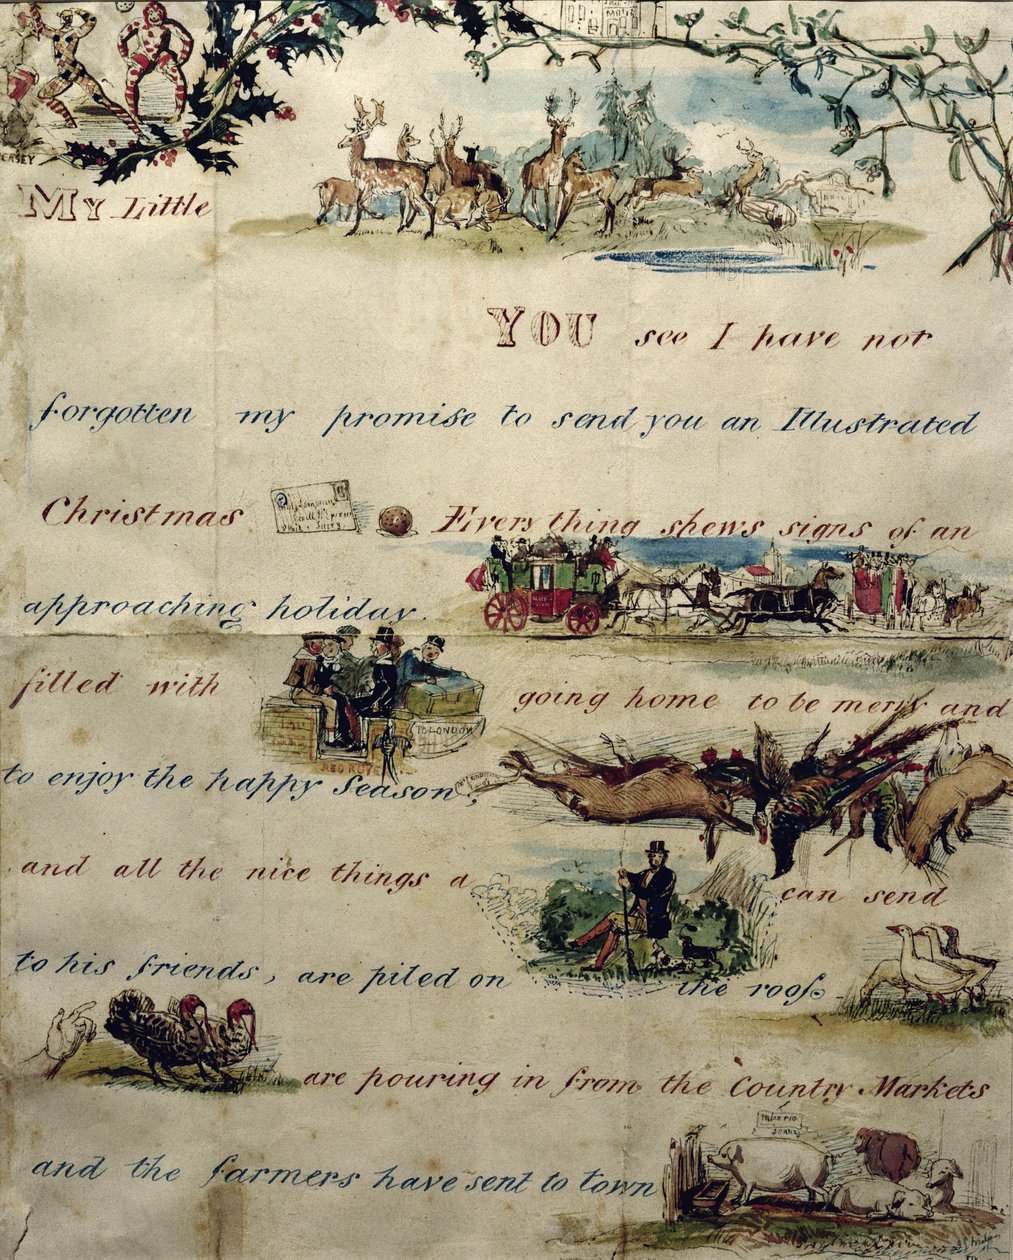 ERSEY
My Little
YOU see I have not
forgotten my promise to send you an Illustrated
Christmas
Every thing shews signs of an
approaching holiday.
filled with
going home to be merry and
TO LONDON
RED ROVER
to enjoy the happy Season,
and all the nice things a
can send
to his friends, are piled on
the roof.
are pouring in from the Country Markets
PRIZE PIG
and the farmers have sent to town